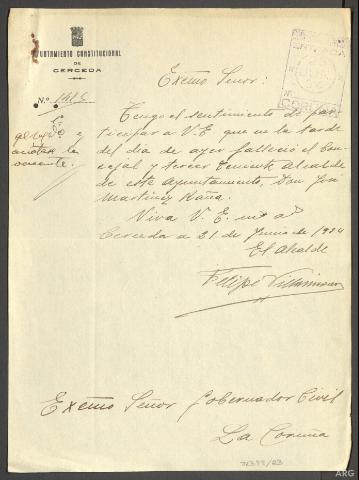 AYUNTAMIENTO CONSTITUCIONAL
DE
CERCEDA
N.º
Excmo Señor:
ENTRADA
Tengo el sentimiento de par-
ticipar a V.E. que en la tarde
del dia de ayer falleció el Con-
cejal y tercer Teniente Alcalde
de este Ayuntamiento, Don José
Martínez Raña.
Viva V. E. m a
Cerceda a 21 de Junio de 1924
El Alcalde
Felipe
Excmo Señor Gobernador Civil
La Coruña
ARG